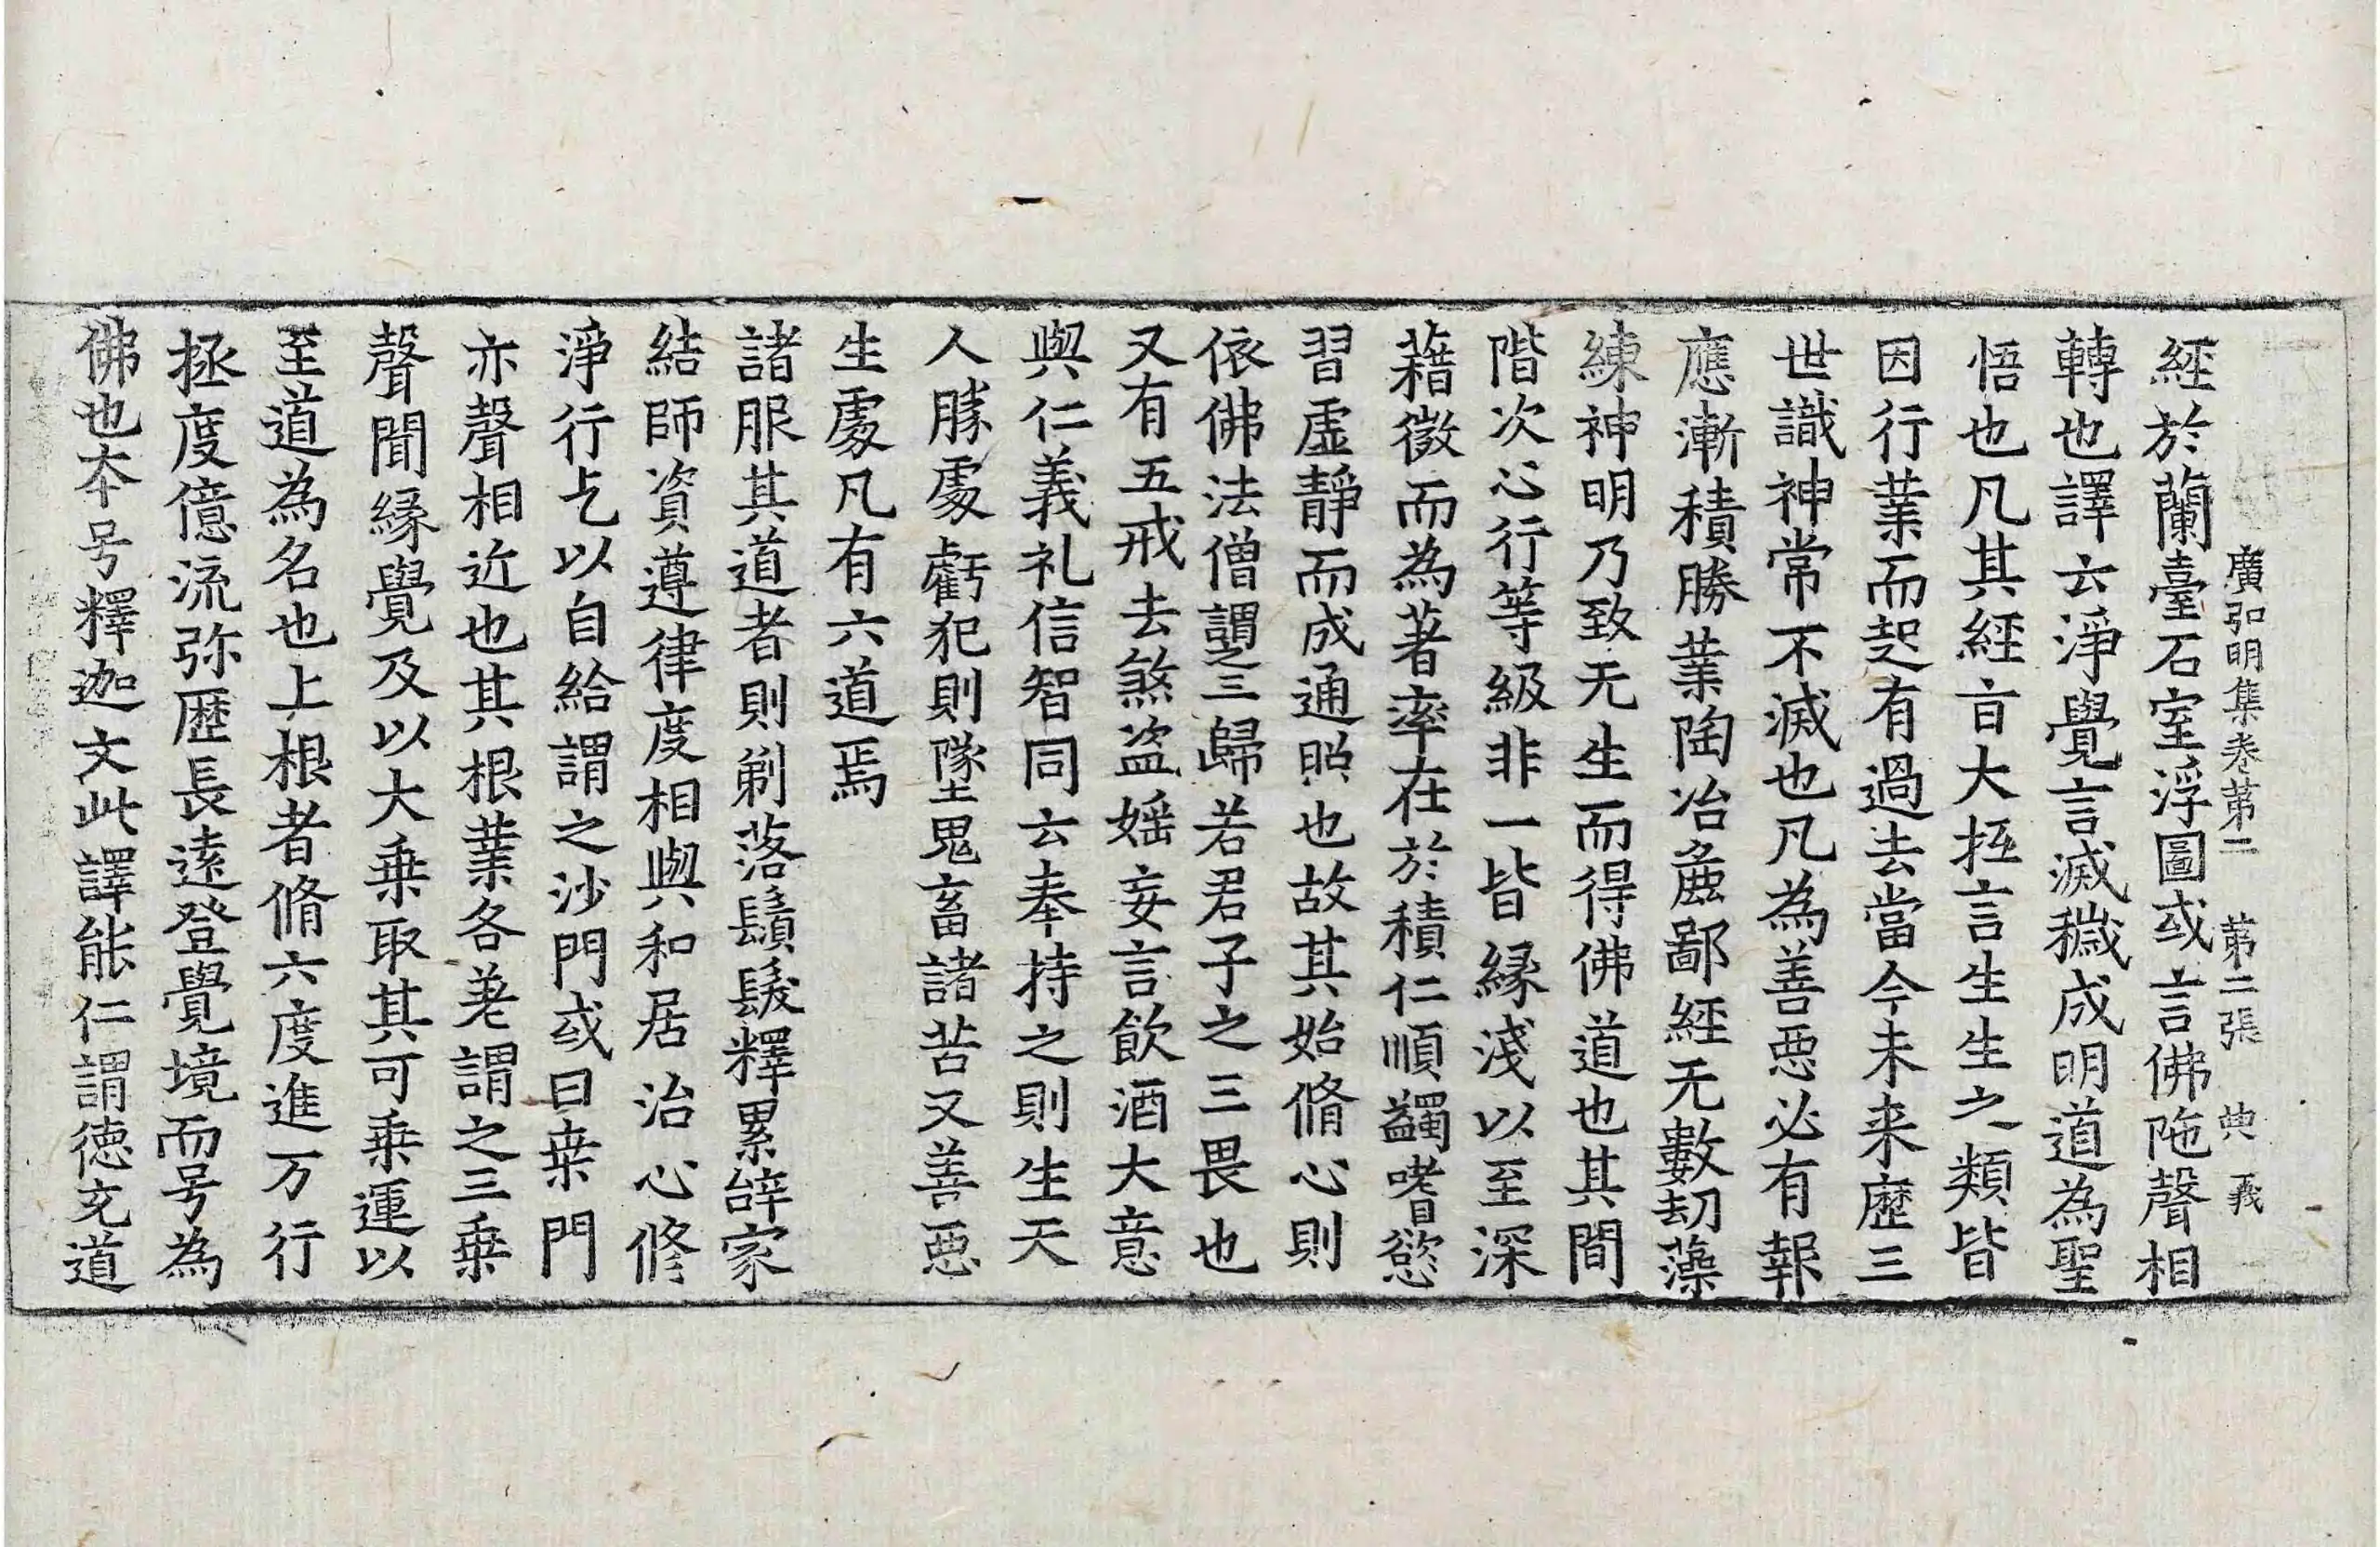 廣弘明集卷第二 第二張 典 義
經於蘭臺石室浮圖或言佛陁聲相
轉也譯云淨覺言滅穢成明道為聖
悟也凡其經旨大抵言生生之類皆
因行業而起有過去當今未来歷三
世識神常不滅也凡為善惡必有報
應漸積勝業陶冶麁鄙經无數劫藻
練神明乃致无生而得佛道也其間
階次心行等級非一皆緣淺以至深
藉微而為著率在於積仁順蠲嗜慾
習虛靜而成通照也故其始脩心則
依佛法僧謂之三歸若君子之三畏也
又有五戒去煞盜婬妄言飲酒大意
與仁義礼信智同云奉持之則生天
人勝處虧犯則墜鬼畜諸苦又善惡
生處凡有六道焉
諸服其道者則剃落鬚髮釋累辝家
結師資遵律度相與和居治心修
淨行乞以自給謂之沙門或曰桒門
亦聲相近也其根業各差謂之三乗
聲聞緣覺及以大乗取其可乗運以
至道為名也上根者脩六度進万行
拯度億流弥歷長遠登覺境而号為
佛也本号釋迦文此譯能仁謂徳充道